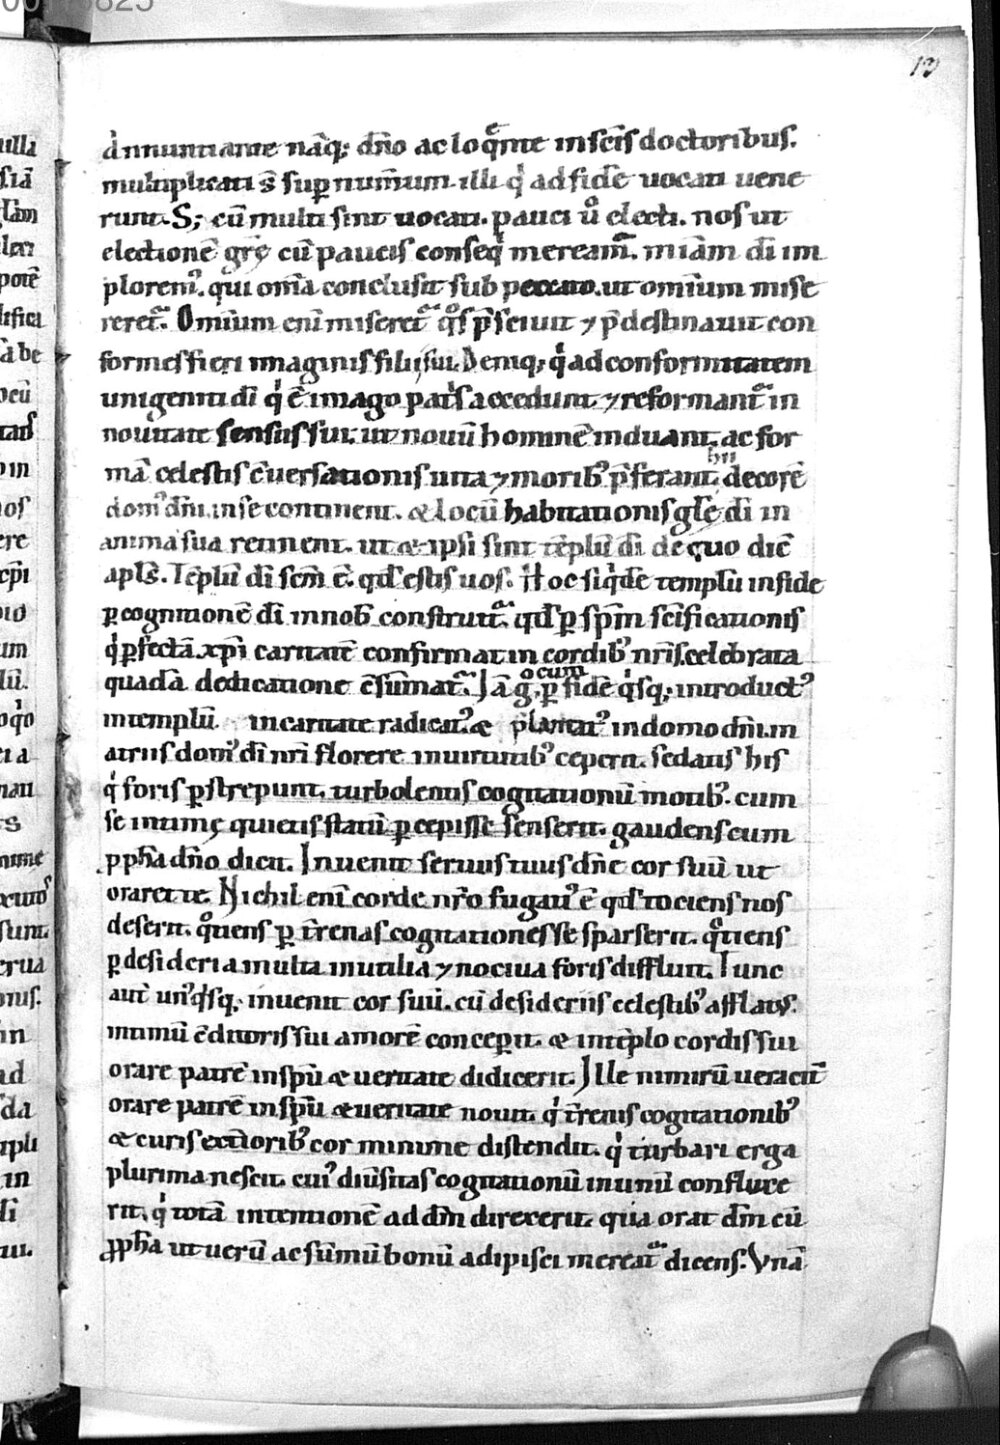 12
Annuntiante nāq; dn̄o ac loq̄nte in sc̄is doctoribus.
multiplicati s̄ sup numerum. illi q' ad fidē uocati uene
runt. S; cū multi sint uocati. pauci u° electi. nos ut
electionē grę cū paucis conseq' mereamr̄. miam̄ dī im
plorem'. qui om̄a conclusit sub peccato. ut omīum mise
reret̄. Omīum enī miseret̄ q°s p̄sciuit ⁊ p̄destinauit con
formes fieri imaginis filii sui. Deniq; q' ad conformitatem
unigeniti dī q' ē imago pat's accedunt ⁊ reformant̄ in
nouitate sensus sui. ut nouū hominē induant. ac for
mā celestis c̄uersationis uita ⁊ morib' p̄ferant. decorē
dom' dn̄i in se continent. & locū habitationis glę dī in
anima sua retinent. ut & ipsi sint tēplū dī de quo dic̄
apl̄s. Tēplū dī sc̄m ē. qd̄ estis uos. Hoc siq'dē templū in fide
p cognitionē dī in nob̄ construit̄. qd̄ p sp̄m sc̄ificationis
q' pfectā xp̄i caritatē confirmat in cordib' nr̄is. celebrata
quadā dedicatione c̄sūmat̄. Iā g° cum p fidē q'sq; introduct'
in templū in caritate radicat' & plantat' in domo dn̄i in
atriis dom' dī nr̄i florere in uirtutib' ceperit. sedatis his
q' foris pstrepunt. turbolentis cogitationū motib'. cum
se intimę quietis statū pcepisse senserit. gaudens cum
ppha dn̄o dicit. Inuenit seruus tuus dn̄e cor suū ut
oraret te. Nichil enī corde nr̄o fugati' ē qd̄ tociens nos
deserit. q°tiens p t̄renas cogitationes se sparserit. q°tiens
p desideria multa inutilia ⁊ nociua foris diffluit. Tunc
aut̄ un'q'sq; inuenit cor suū. cū desideriis celestib' afflatus.
intimū c̄ditoris sui amorē conceperit. & in tēplo cordis sui
orare patrē in sp̄u & ueritate didicerit. Ille nimirū ueracit̄
orare patrē in sp̄u & ueritate nouit. q' t̄renis cogitationib'
& curis exterīorib' cor minime distendit. q' turbari erga
plurima nescit. cui' diuersitas cogitationū in unū confluxe
rit. q' totā intentionē ad dn̄m direxerit. quia orat dn̄m cū
ppha ut uerū ac sūmū bonū adipisci mereat̄ dicens. Vnā